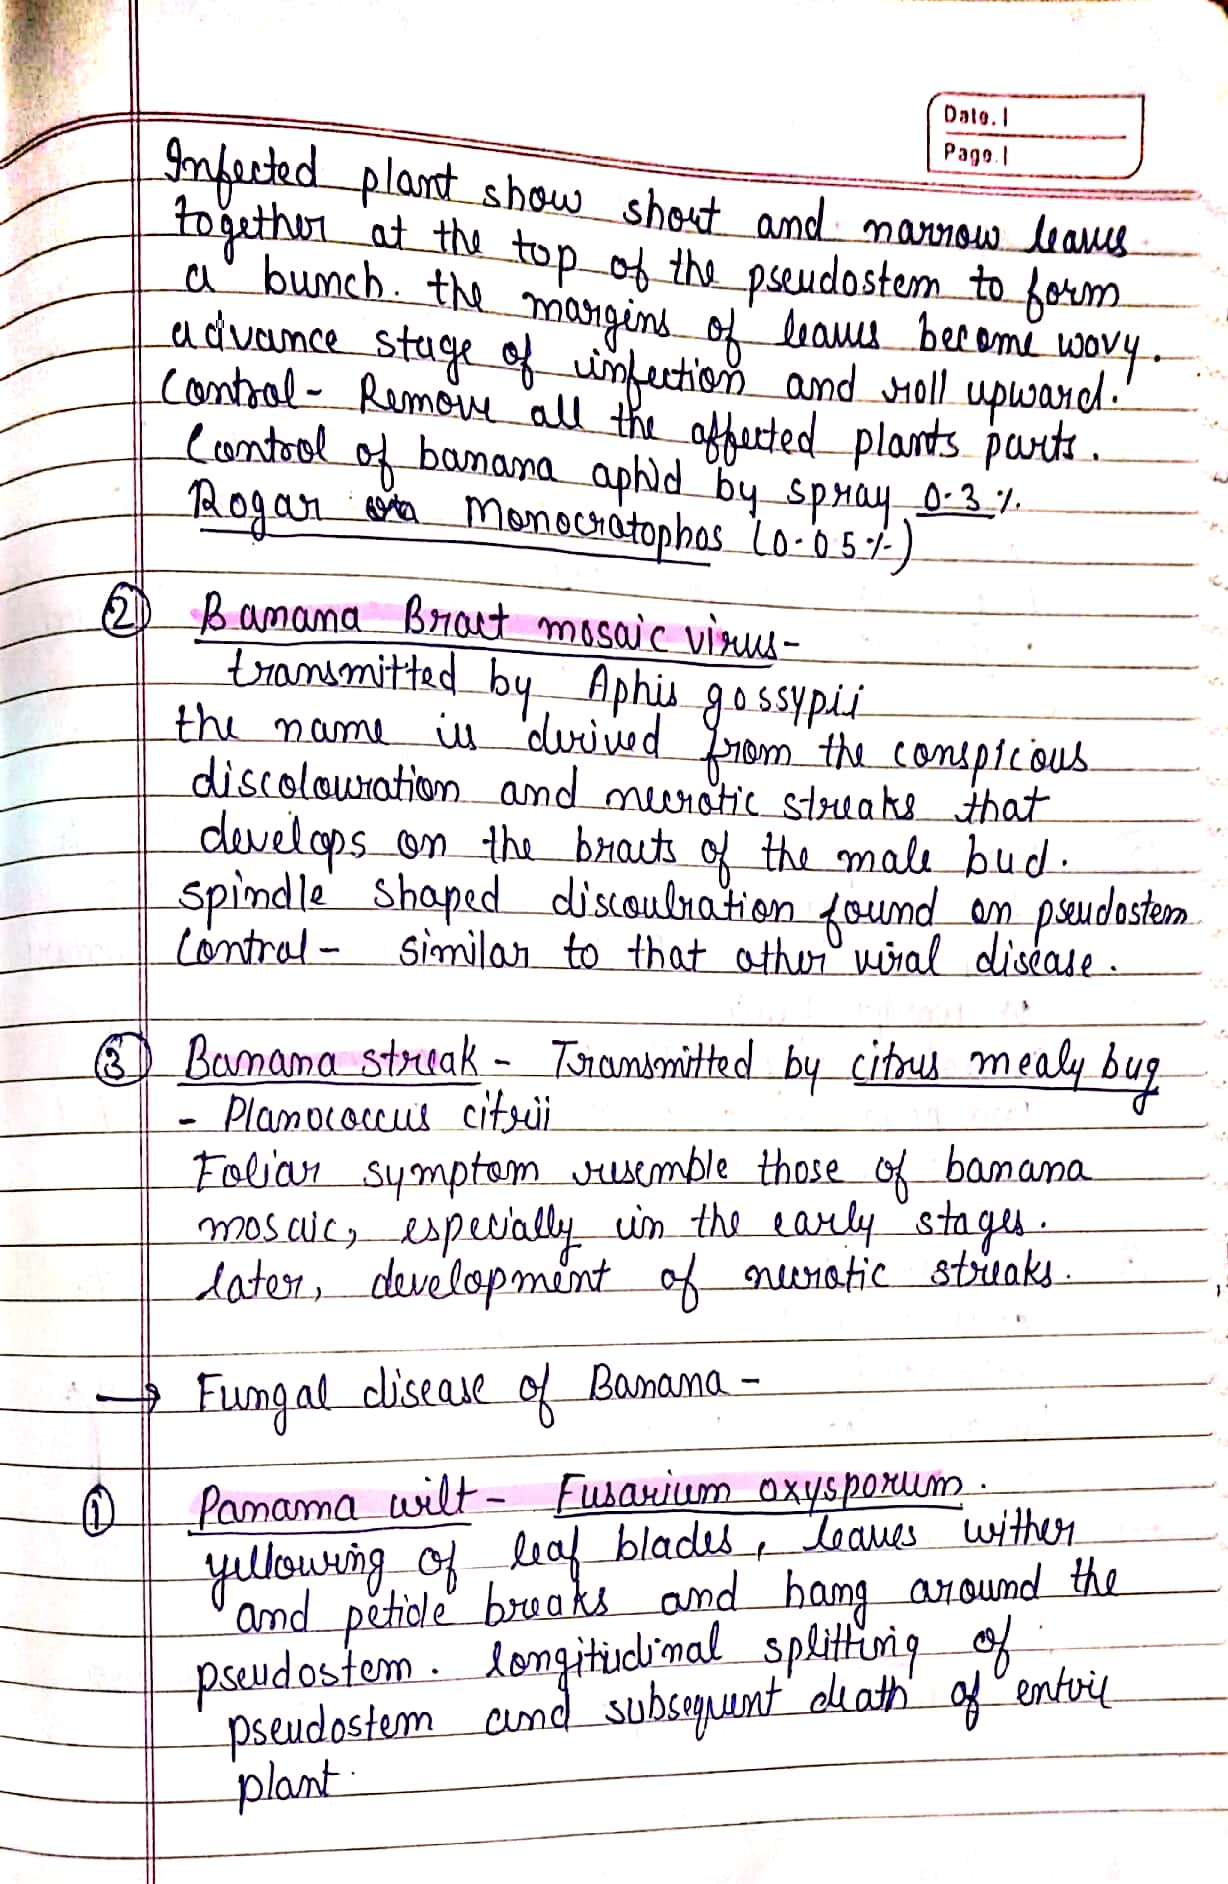 Date.
Page.
Infected plant show short and narrow leaves
together at the top of the pseudostem to form
a bunch. the margins of leaves become wavy.
advance stage of infection and roll upward.
Control - Remove all the affected plants parts.
Control of banana aphid by spray 0.3 %.
Rogar Monocratophos (0.05%)
② Banana Bract mosaic virus-
transmitted by Aphis gossypii
the name is derived from the conspicious
discolouration and necrotic streaks that
develops on the bracts of the male bud.
spindle shaped discoulration found on pseudostem
Control - similar to that other viral disease.
③ Banana streak - Transmitted by citrus mealy bug
- Planococcus citrii
Foliar symptom resemble those of banana
mosaic, especially in the early stages.
later, development of necrotic streaks.
→ Fungal disease of Banana -
① Panama wilt - Fusarium oxysporum.
yellowing of leaf blades, leaves wither
and petiole breaks and hang around the
pseudostem. longitudinal splitting of
pseudostem and subsequent death of entire
plant.